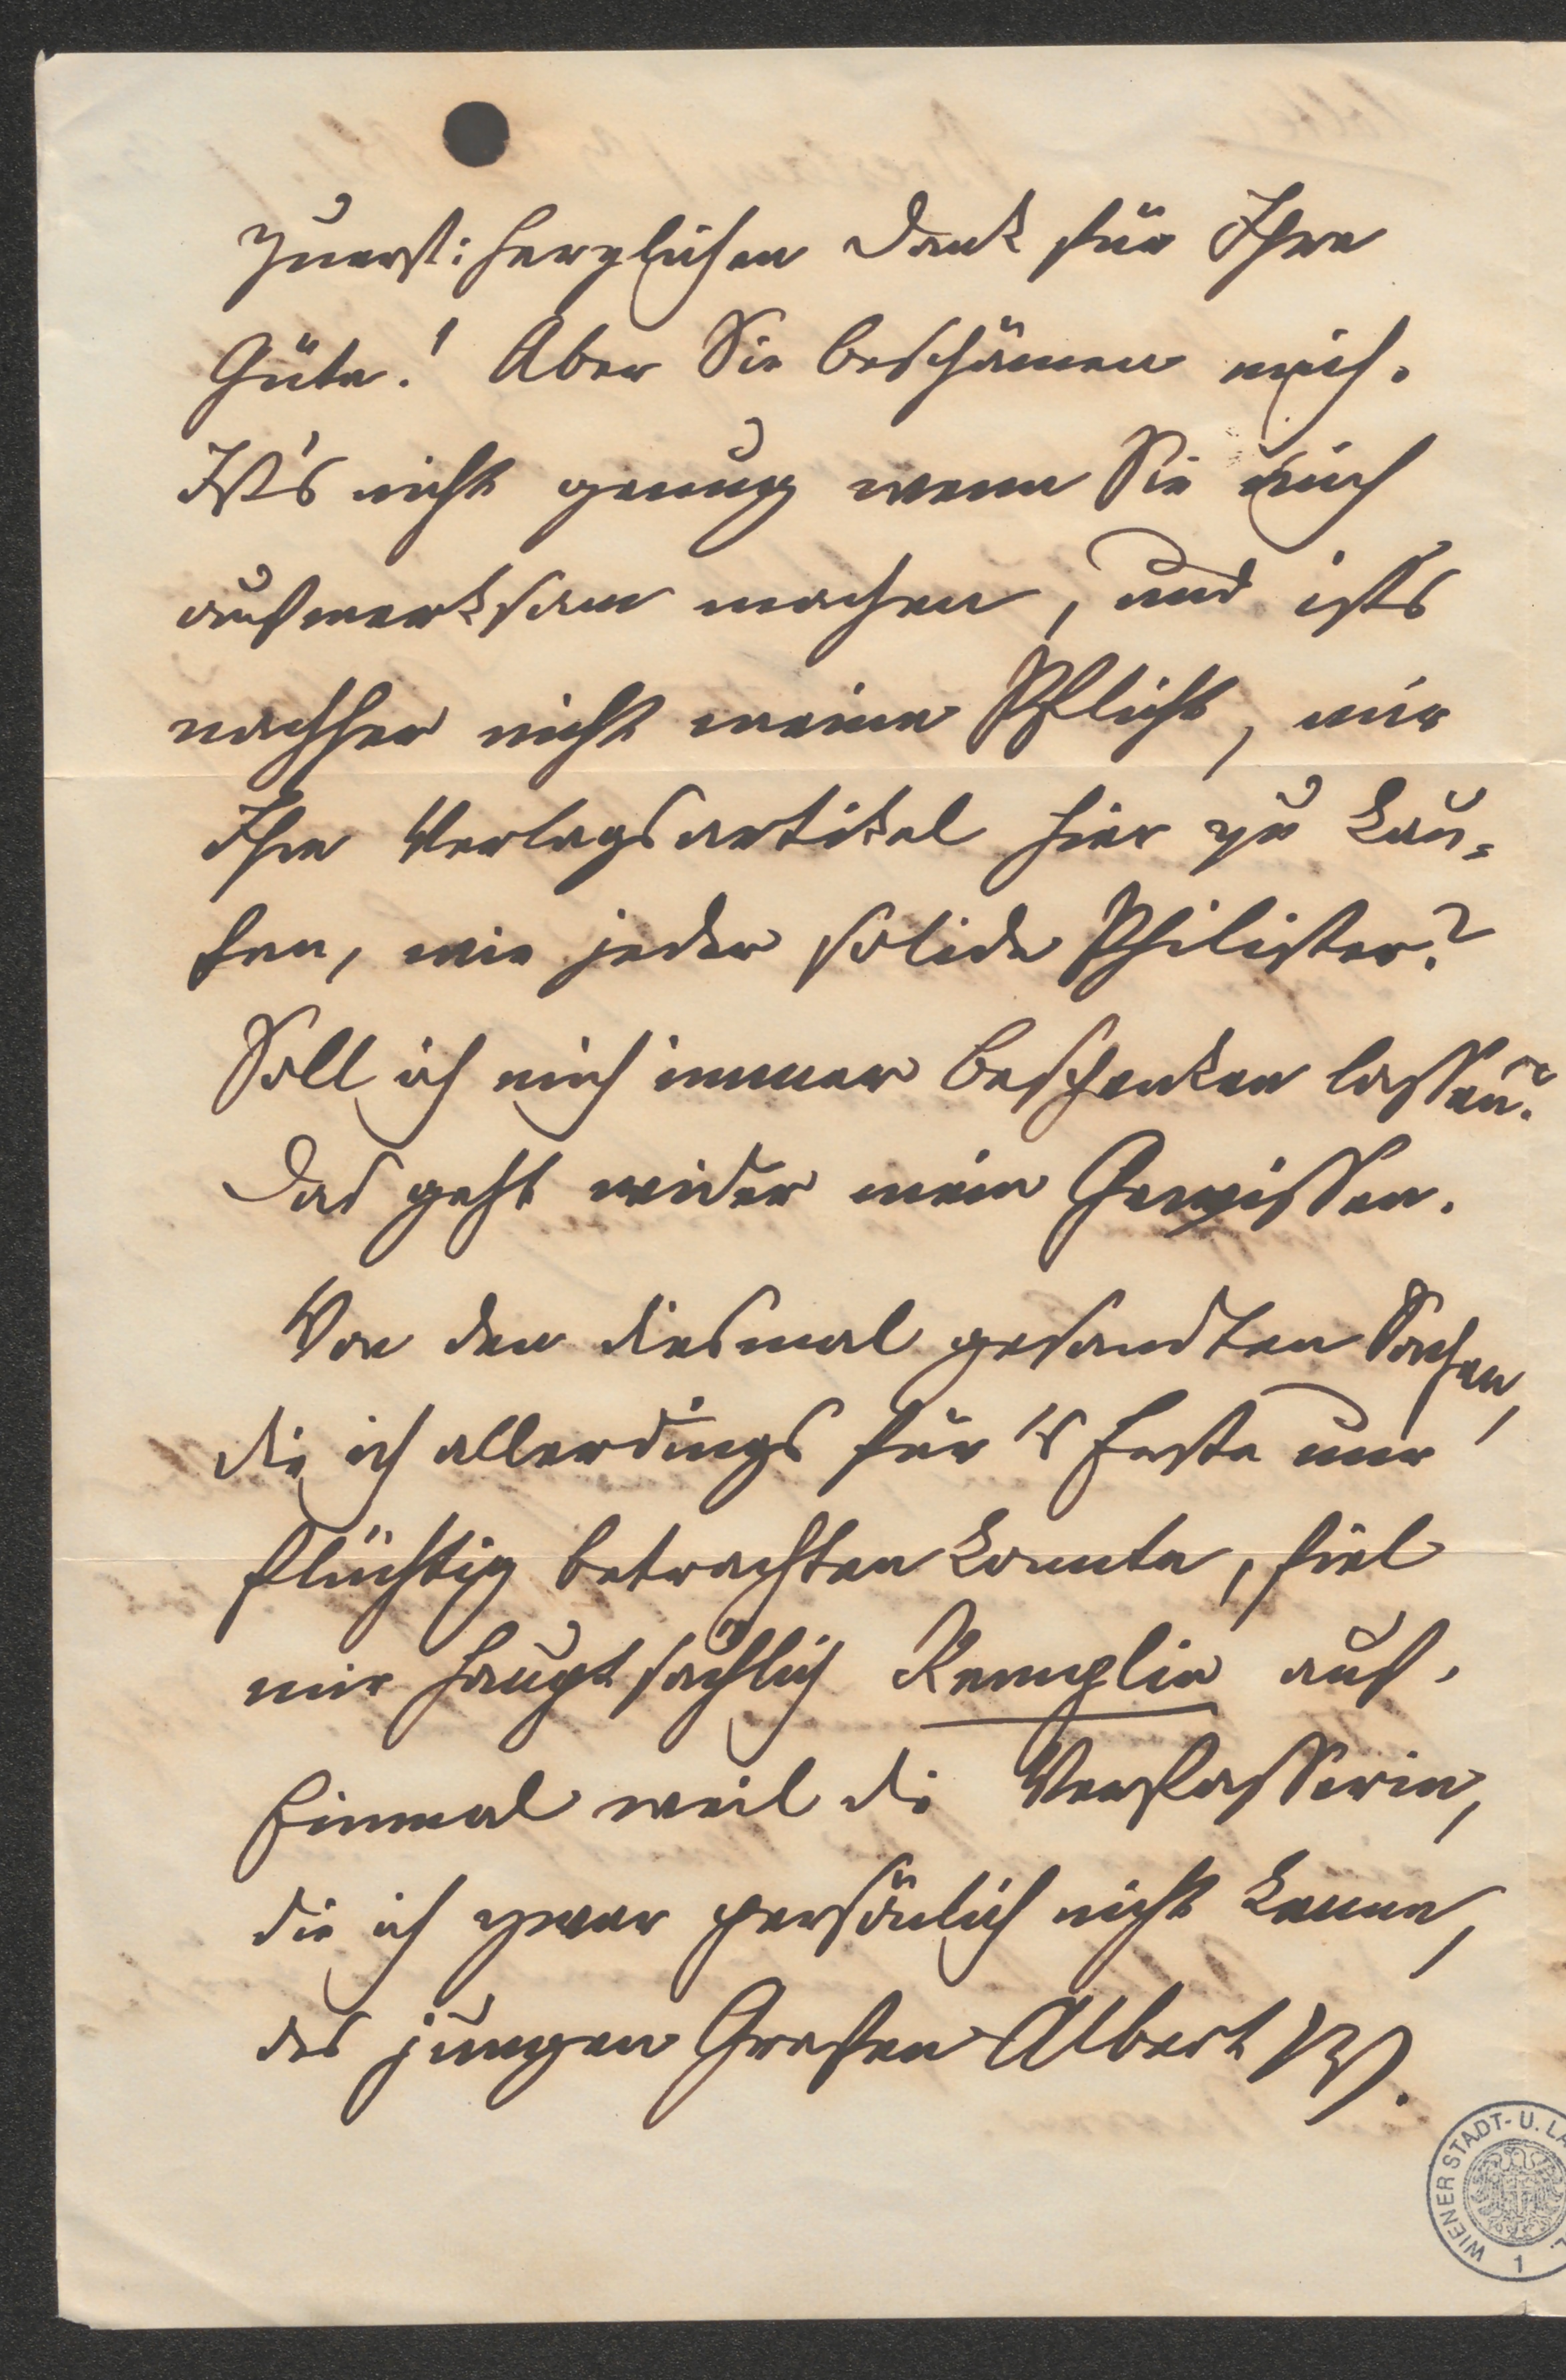 Zuerst: herzlichen Dank für Ihre
Güte! Aber Sie beschämen mich.
Ist's nicht genug wenn Sie mich
aufmerksam machen, und ists
nachher nicht meine Pflicht, mir
Ihre Verlagsartikel hier zu kau-
fen, wie jeder solide Philister?
Soll ich mich immer beschenken lassen?
Das geht wider mein Gewissen.
Von den diesmal gesandten Sachen,
die ich allerdings für's Erste nur
flüchtig betrachten konnte, fiel
mir hauptsächlich Remplin auf.
Einmal weil die Verfasserin,
die ich zwar persönlich nicht kenne,
des jungen Grafen Albert W.
WIENER STADT- U. LA
1